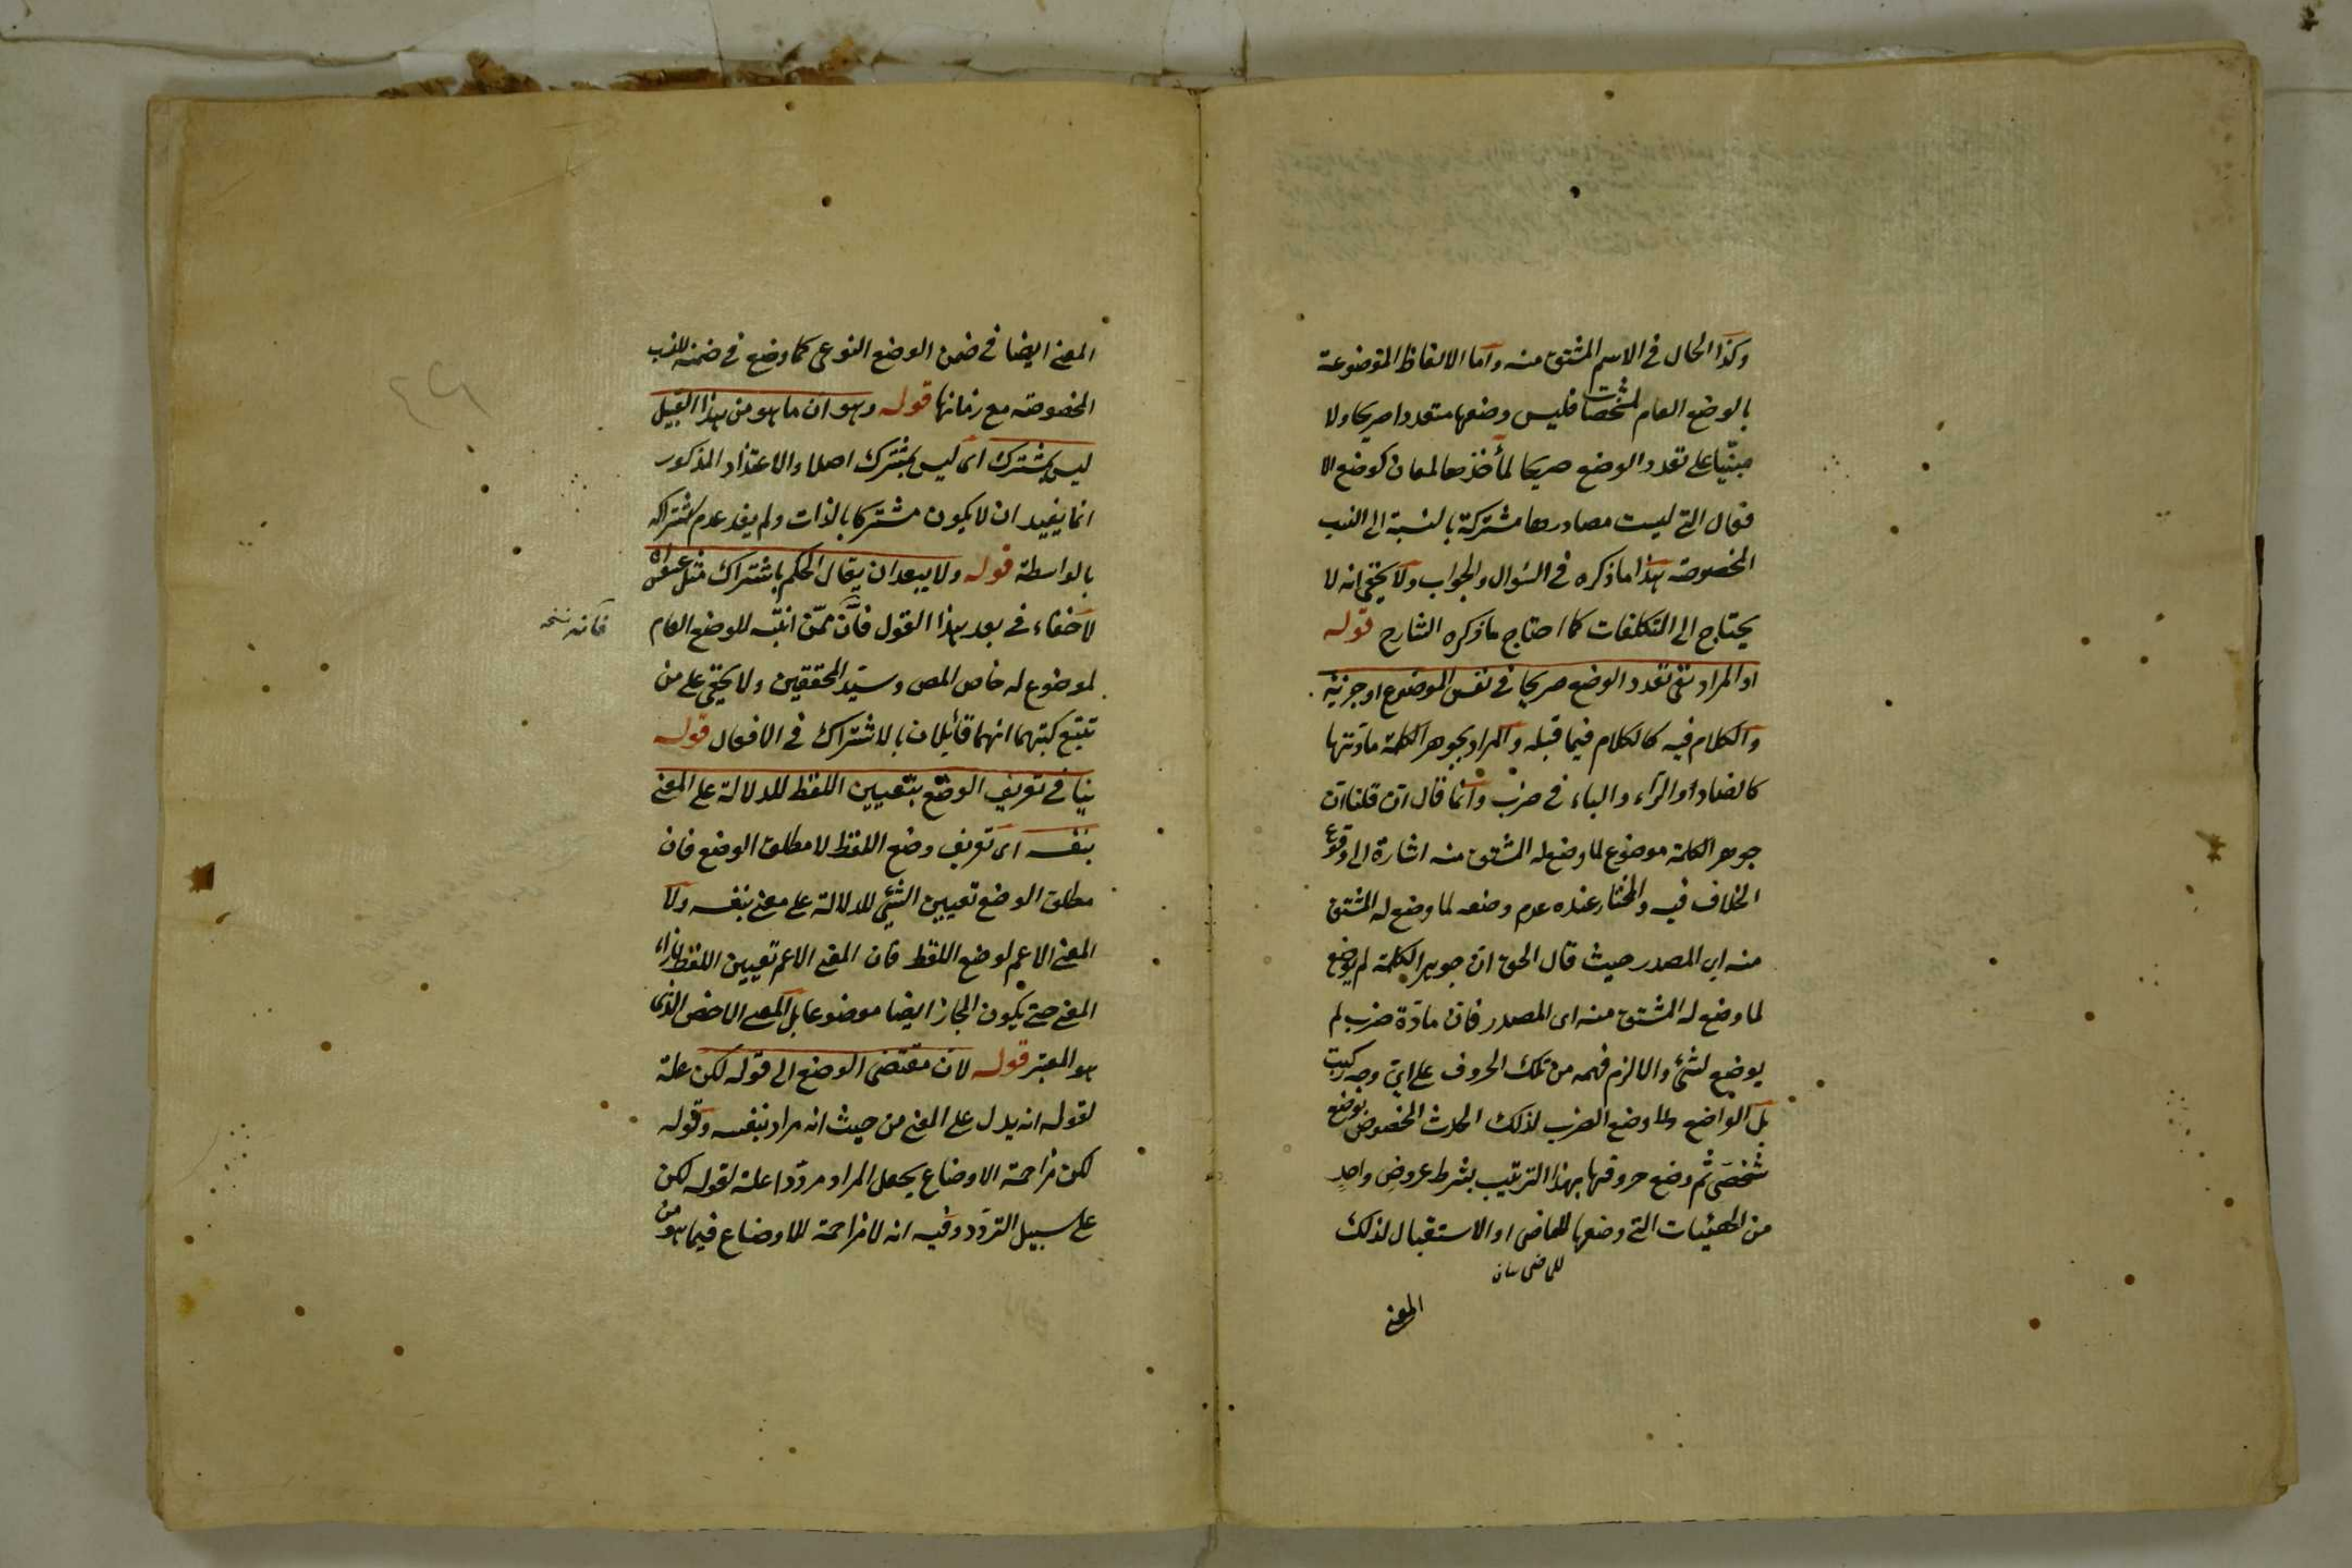 وكذا الحال فى الاسم المشتق منه واما الالفاظ الموضوعة
بالوضع العام لمشخصات فليس وضعها متعددا صريحا ولا
مبنيا على تعدد الوضع صريحا لمأخذها لمعان كوضع الا
فعال التى ليست مصادرها مشتركة بالنسبة الى النسب
المخصوصة هذا ما ذكره فى السؤال والجواب ولا يخفى انه لا
يحتاج الى التكلفات كما احتاج ما ذكره الشارح قوله
او المراد نفى تعدد الوضع صريحا فى نفس الموضوع او جزئية
والكلام فيه كالكلام فيما قبله والمراد بجوهر الكلمة مادتها
كالضاد والراء والباء فى ضرب وانما قال ان قلنا ان
جوهر الكلمة موضوع لما وضع له المشتق منه اشارة الى وقوع
الخلاف فيه والمختار عنده عدم وضعه لما وضع له المشتق
منه اى المصدر حيث قال الحق ان جوهر الكلمة لم يوضع
لما وضع له المشتق منه اى المصدر فان مادة ضرب لم
يوضع لشئ والا لزم فهمه من تلك الحروف على اى وجه ركبت
بل الواضع لما وضع الضرب لذلك الحدث المخصوص بوضع
شخصى ثم وضع حروفها بهذا الترتيب بشرط عروض واحد
من الهيئات التى وضعها للماضى او الاستقبال لذلك
للماضى
المعنى
المعنى ايضا فى ضمن الوضع النوعى كما وضع فى ضمنه للنسب
المخصوصة مع زمانها قوله وهو ان ما هو من هذا القبيل
ليس بمشترك اى ليس بمشترك اصلا والاعتذار المذكور
انما يفيد ان لا يكون مشتركا بالذات ولم يفد عدم اشتراكه
بالواسطة قوله ولا يبعد ان يقال الحكم باشتراك مثل
لا خفاء فى بعد هذا القول فان ممن اثبت للوضع العام
فكانه نسخه
لموضوع له خاص المص وسيد المحققين ولا يخفى على من
تتبع كتبهما انهما قائلان بالاشتراك فى الافعال قوله
ينافى تعريف الوضع بتعيين اللفظ للدلالة على المعنى
بنفسه اى تعريف وضع اللفظ لا مطلق الوضع فان
مطلق الوضع تعيين الشئ للدلالة على معنى بنفسه ولا
المعنى الاعم لوضع اللفظ فان المعنى الاعم تعيين اللفظ بازاء
المعنى حتى يكون المجاز ايضا موضوعا بل المعنى الاخص الذى
هو المعتبر قوله لان مقتضى الوضع الى قوله لكن علة
لقوله انه يدل على المعنى من حيث انه مراد بنفسه وقوله
لكن مزاحمة الاوضاع يجعل المراد مرددا علة لقوله لكن
على سبيل التردد وفيه انه لا مزاحمة للاوضاع فيما هو من